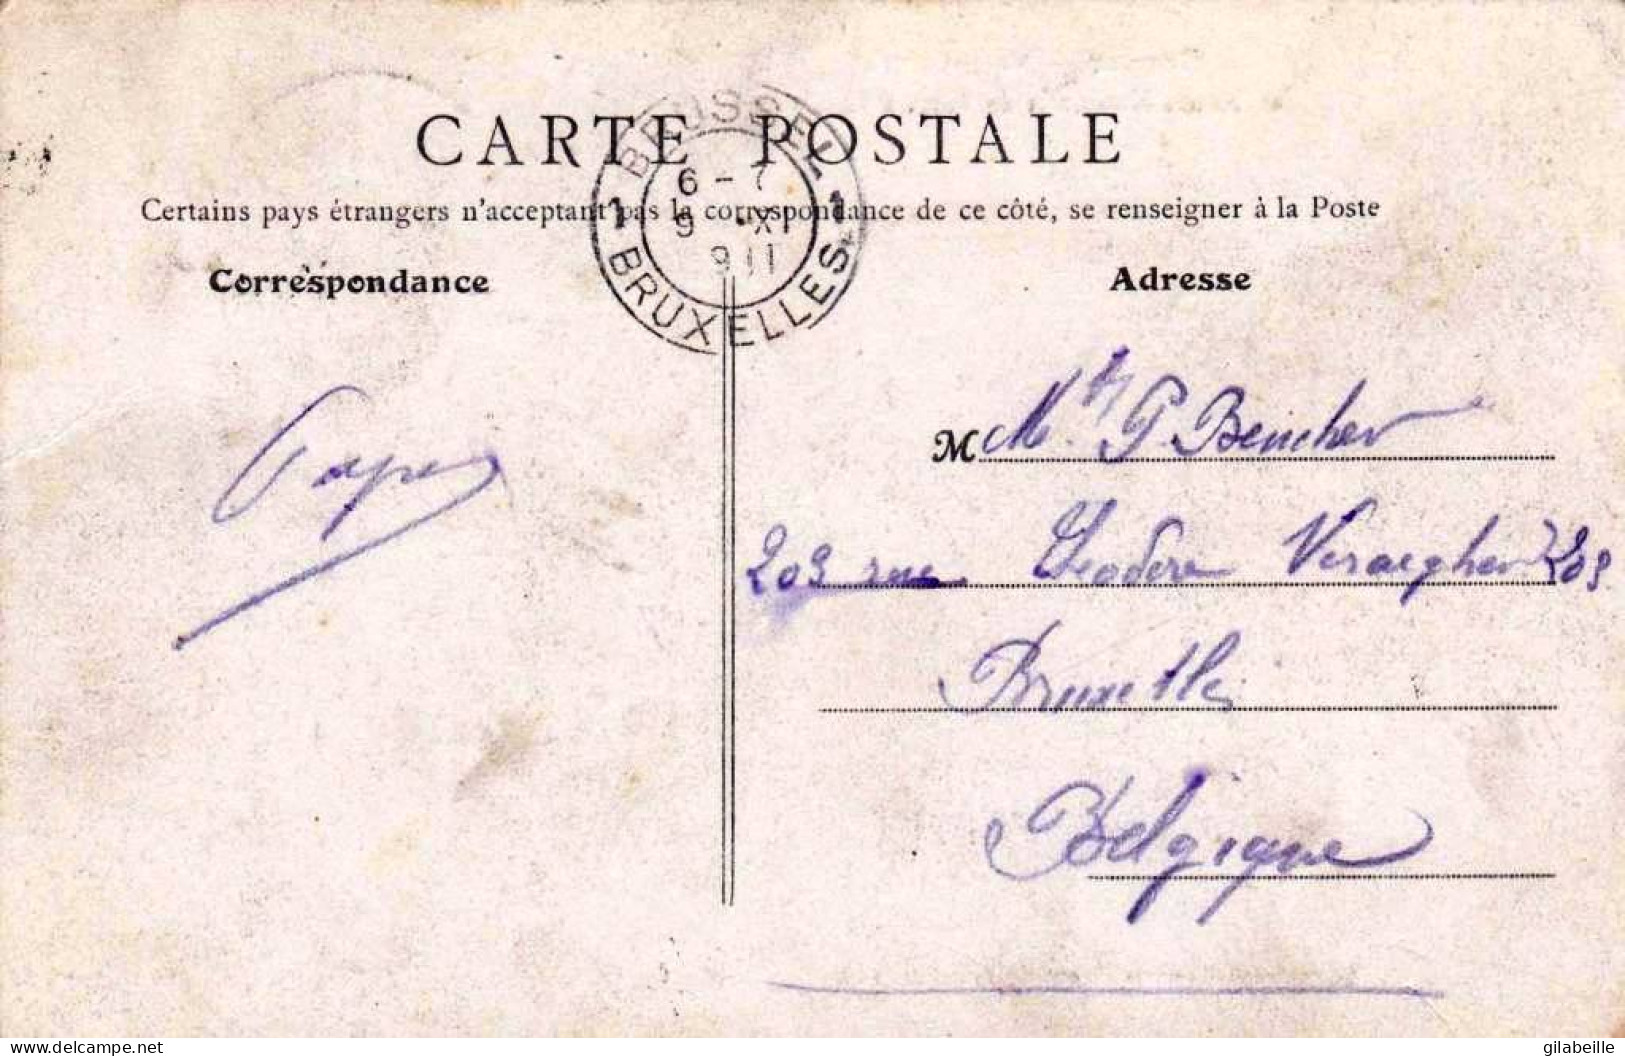 CARTE POSTALE
Certains pays étrangers n'acceptant pas la correspondance de ce côté, se renseigner à la Poste
BRUSSEL
6-7
9 · XI
911
1 BRUXELLES 1
Correspondance
Adresse
Papa
M P. 
203 rue Théodore Veraeghen 203
Bruxelles
Belgique
www.delcampe.net
gilabeille